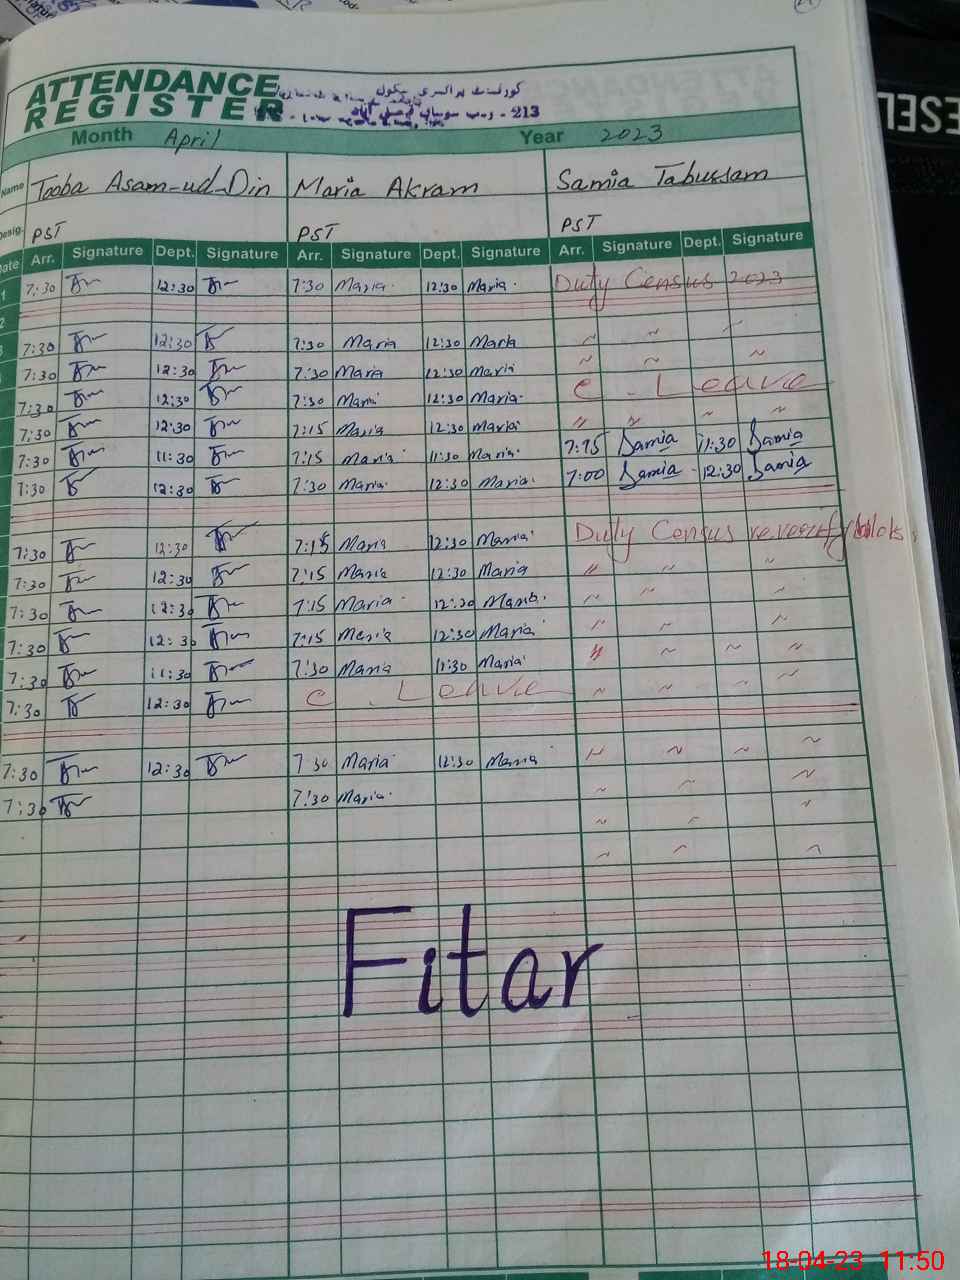 ATTENDANCE
REGISTER
گورنمنٹ پرائمری سکول
213 - ر-ب
Month April Year 2023
Name Tooba Asam-ud-Din Maria Akram Samia Tabussam
Desig. PST PST PST
Date Arr. Signature Dept. Signature Arr. Signature Dept. Signature Arr. Signature Dept. Signature
1 7:30 12:30 7:30 Maria 12:30 Maria Duty Census 2023
2
7:30 12:30 7:30 Maria 12:30 Maria
7:30 12:30 7:30 Maria 12:30 Maria
7:30 12:30 7:30 Maria 12:30 Maria C. Leave
7:30 12:30 7:15 Maria 12:30 Maria
7:30 11:30 7:15 Maria 11:30 Maria 7:15 Samia 11:30 Samia
7:30 12:30 7:30 Maria 12:30 Maria 7:00 Samia 12:30 Samia
7:30 12:30 7:15 Maria 12:30 Maria Duty Census
7:30 12:30 7:15 Maria 12:30 Maria
7:30 12:30 7:15 Maria 12:30 Maria
7:30 12:30 7:15 Maria 12:30 Maria
7:30 11:30 7:30 Maria 11:30 Maria
7:30 12:30 C. Leave
7:30 12:30 7:30 Maria 12:30 Maria
7:30 7:30 Maria
Fitar
18-04-23 11:50